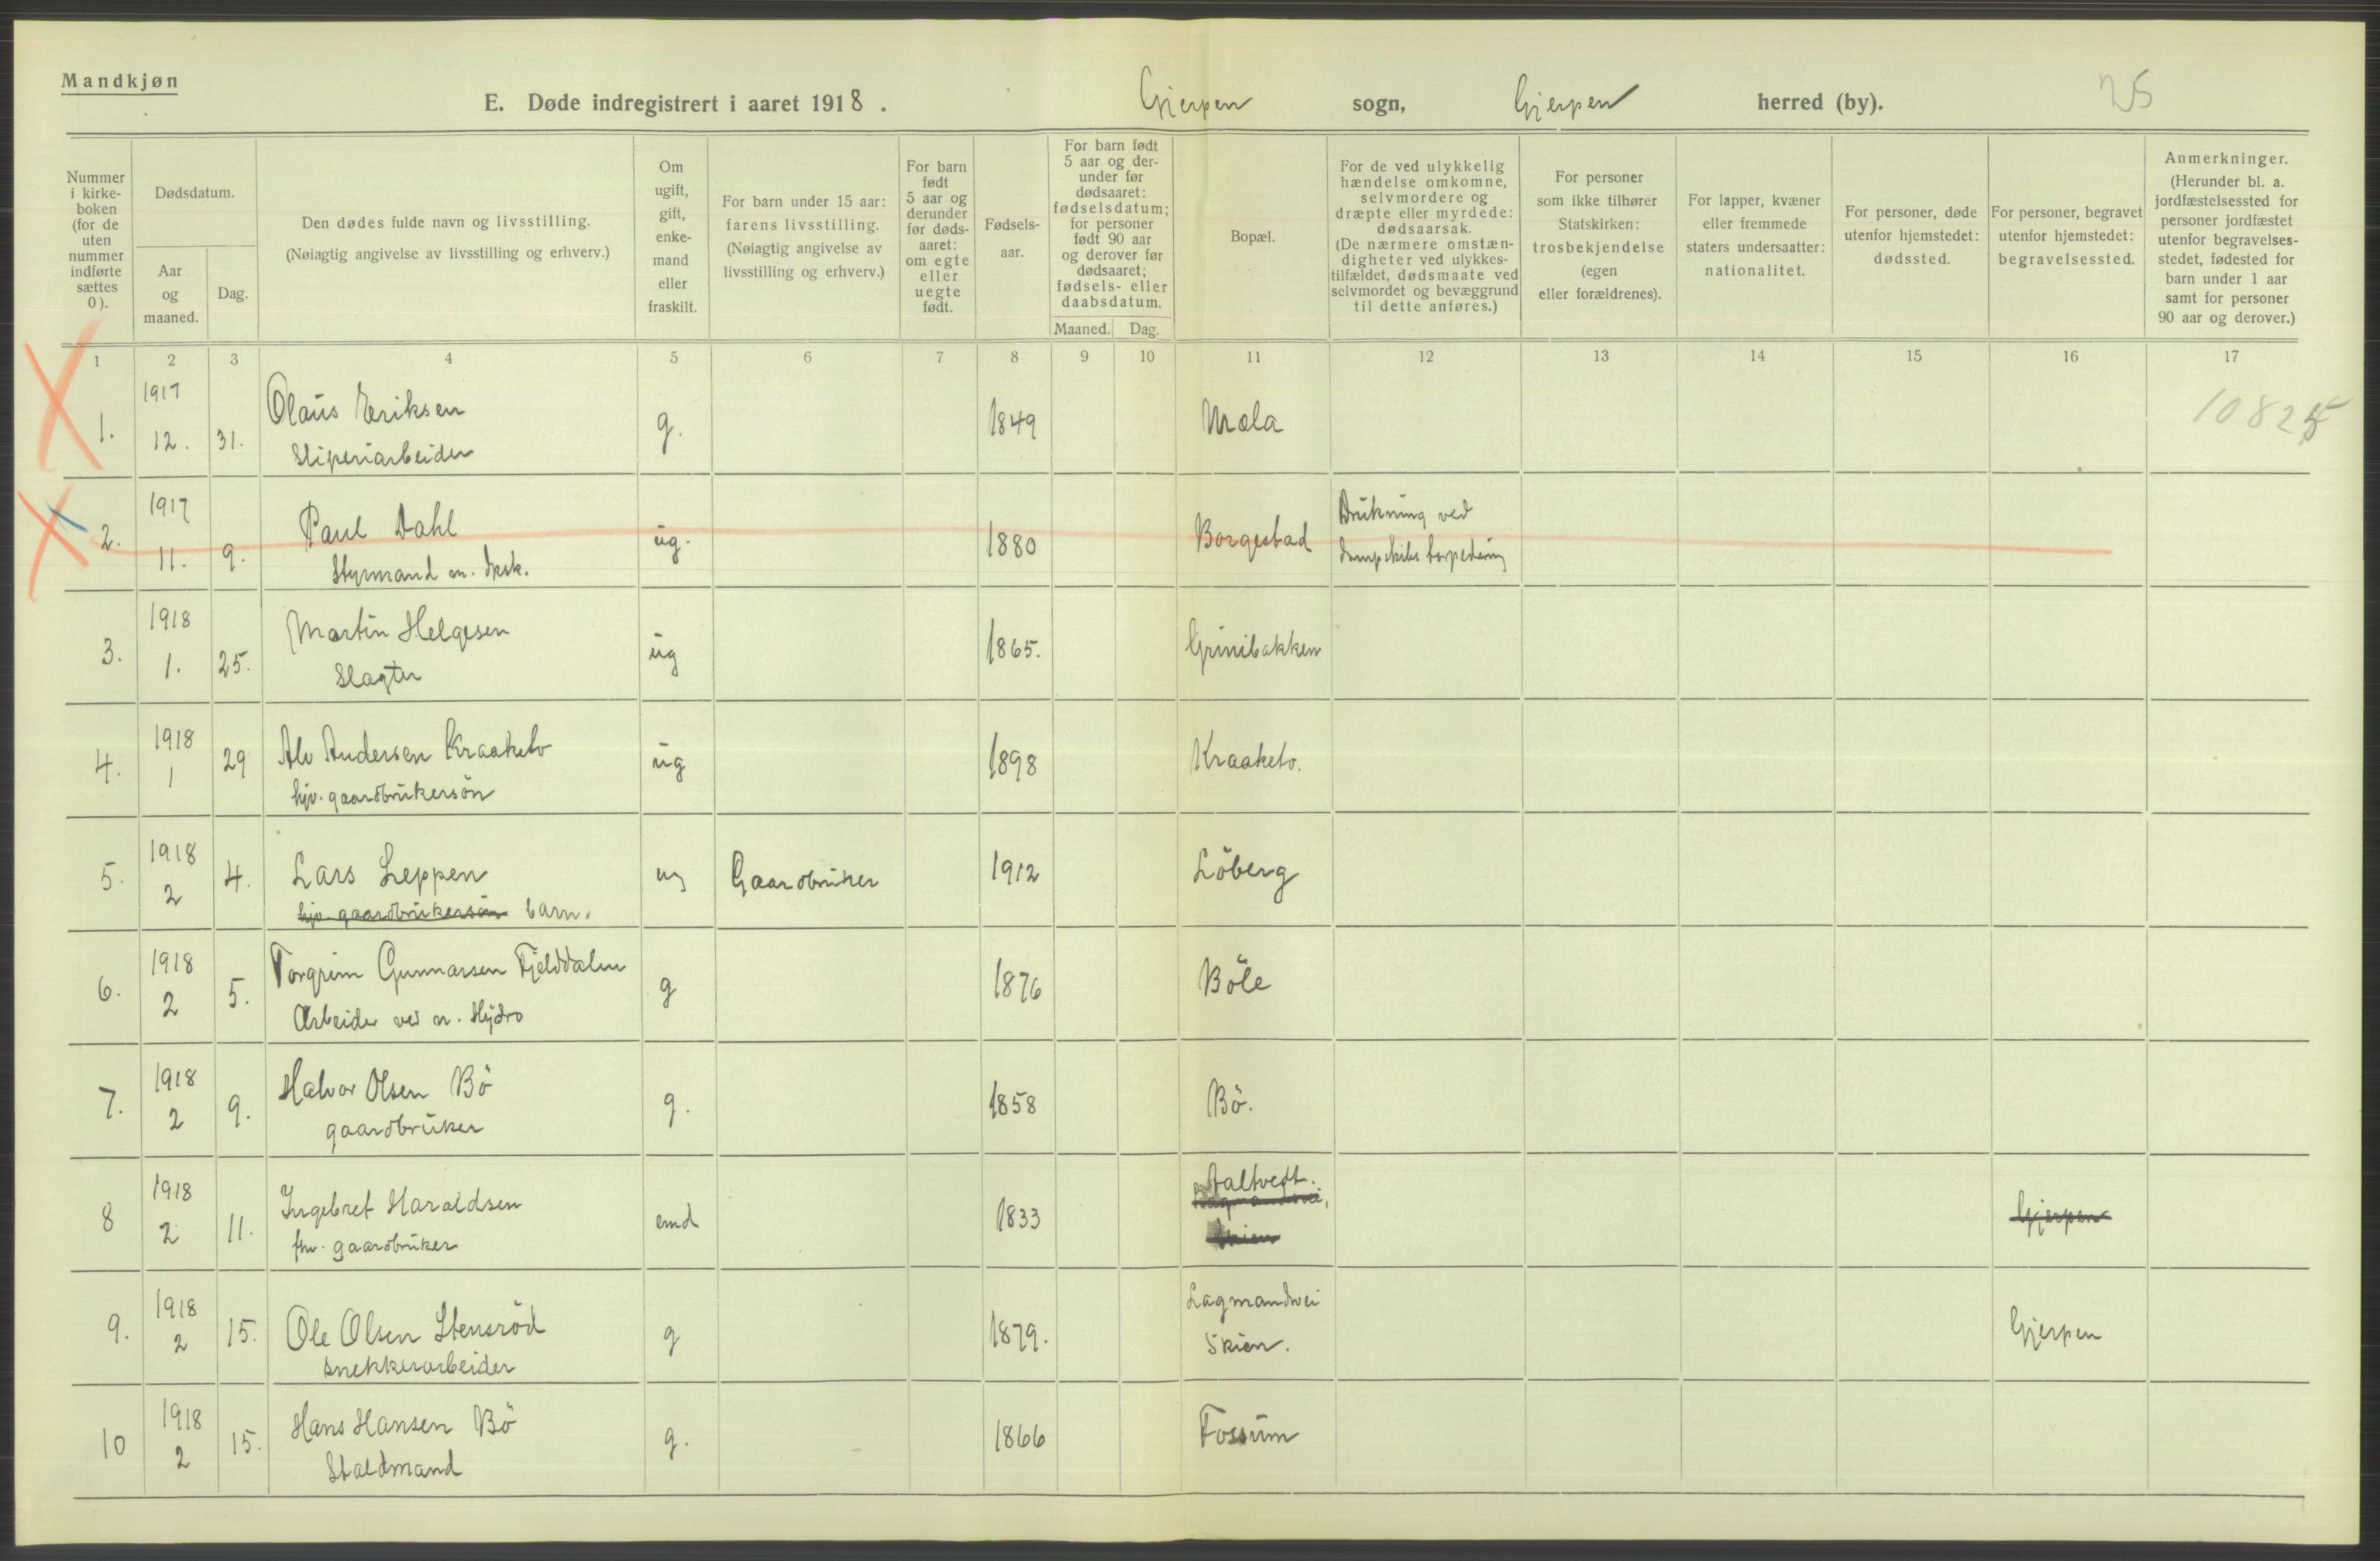 Mandkjøn
E. Døde indregistrert i aaret 1918. Gjerpen sogn, Gjerpen herred (by). 25
Nummer i kirke-boken (for de uten nummer indførte sættes 0).
Dødsdatum.
Aar og maaned.
Dag.
Den dødes fulde navn og livsstilling.
(Nøiagtig angivelse av livsstilling og erhverv.)
Om ugift, gift, enke-mand eller fraskilt.
For barn under 15 aar: farens livsstilling.
(Nøiagtig angivelse av livsstilling og erhverv.)
For barn født 5 aar og derunder før døds-aaret: om egte eller uegte født.
Fødsels-aar.
For barn født 5 aar og der-under før dødsaaret: fødselsdatum; for personer født 90 aar og derover før dødsaaret; fødsels- eller daabsdatum.
Maaned. Dag.
Bopæl.
For de ved ulykkelig hændelse omkomne, selvmordere og dræpte eller myrdede: dødsaarsak.
(De nærmere omstæn-digheter ved ulykkes-tilfældet, dødsmaate ved selvmordet og bevæggrund til dette anføres.)
For personer som ikke tilhører Statskirken: trosbekjendelse (egen eller forældrenes).
For lapper, kvæner eller fremmede staters undersaatter: nationalitet.
For personer, døde utenfor hjemstedet: dødssted.
For personer, begravet utenfor hjemstedet: begravelsessted.
Anmerkninger.
(Herunder bl. a. jordfæstelsessted for personer jordfæstet utenfor begravelses-stedet, fødested for barn under 1 aar samt for personer 90 aar og derover.)
1 2 3 4 5 6 7 8 9 10 11 12 13 14 15 16 17
1. 1917 12. 31. Olaus Eriksen g. 1849 Mæla 10825
Sliperiarbeider
2. 1917 11. 9. Paul Dahl ug. 1880 Borgestad Drukning ved
Styrmand m. dpsk. dampskibs torpedering
3. 1918 1. 25. Martin Helgesen ug 1865. Grinibakken
Slagter
4. 1918 1 29 Alv Andersen Kraaketo ug 1898 Kraaketo.
hjv. gaardbrukersøn
5. 1918 2 4. Lars Leppen ug Gaardbruker 1912 Löberg
hjv. gaardbrukersøn barn.
6. 1918 2 5. Torgrim Gunnarsen Fjelddalen g 1876 Böle
Arbeider ved n. Hydro
7. 1918 2 9. Halvor Olsen Bö g. 1858 Bö.
gaardbruker
8 1918 2 11. Ingebret Haraldsen emd 1833 Aaltvedt. Gjerpen
fhv. gaardbruker Skien
9. 1918 2 15. Ole Olsen Stensröd g 1879. Lagmandsvei Skien. Gjerpen
snekkerarbeider
10 1918 2 15. Hans Hansen Bö g. 1866 Fossum
Staldmand